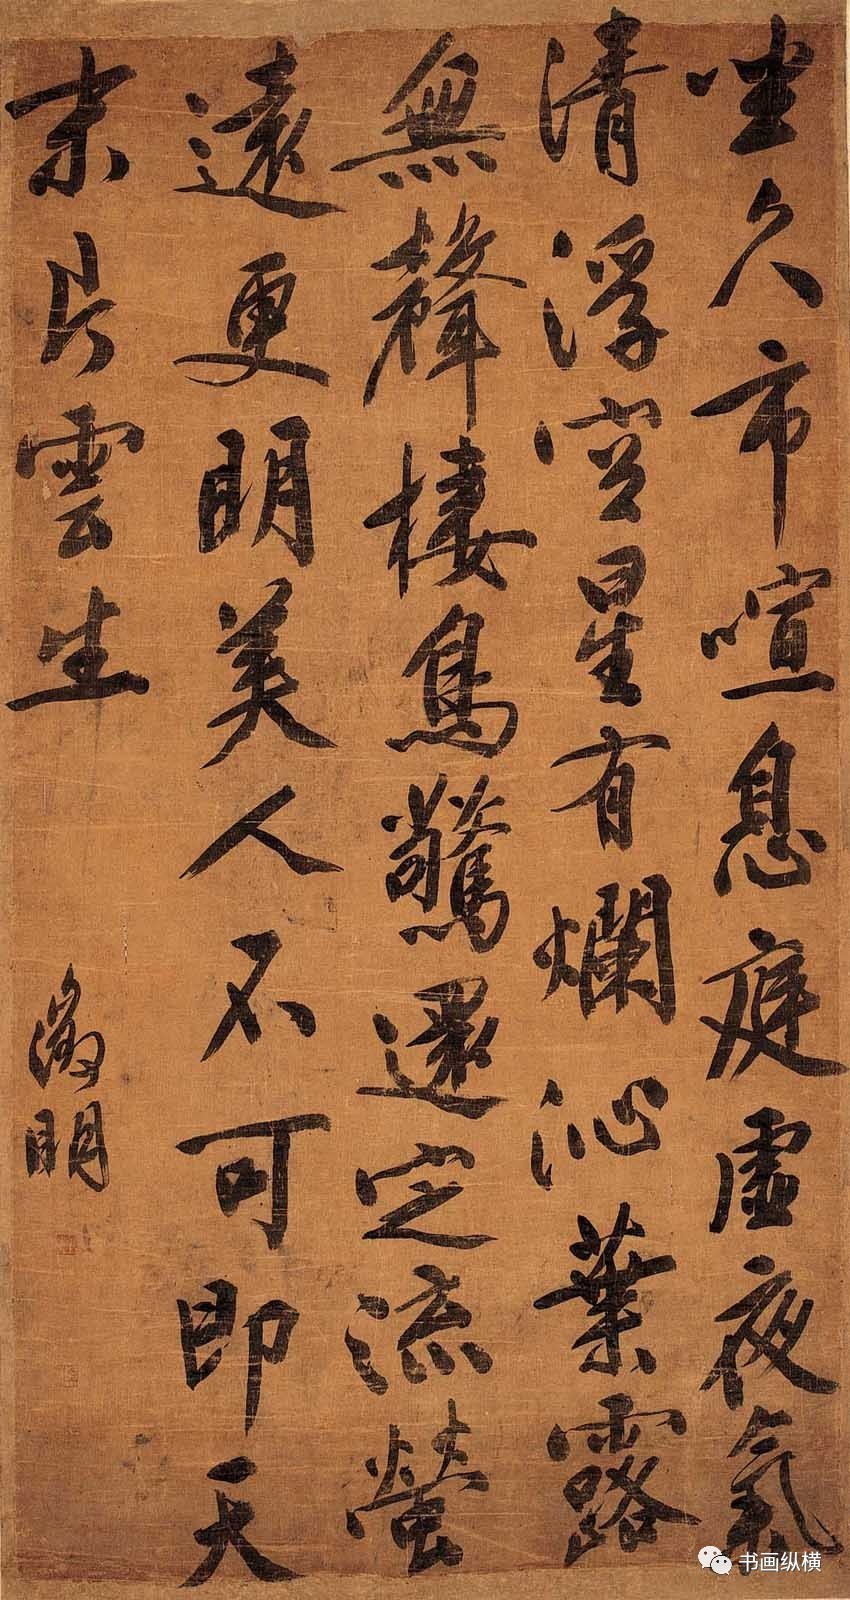 坐久市喧息庭虛夜氣
清浮空星有爛沁葉露
無聲棲鳥驚還定流螢
遠更明美人不可即天
末片雲生
徵明
书画纵横